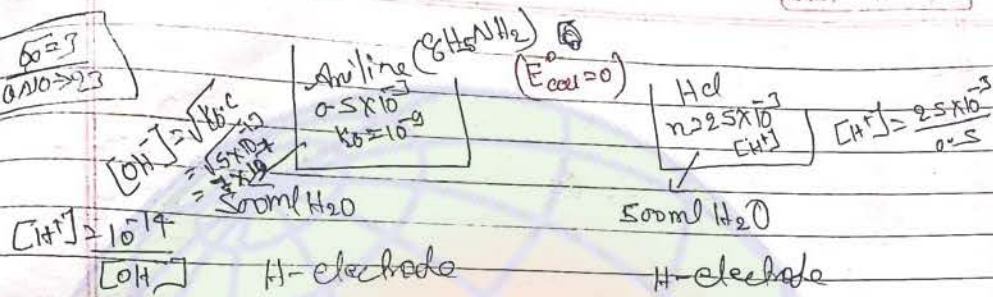 Aniline (C6H5NH2)
0.5×10^-3
Kb=10^-9
(E°cell=0)
HCl
n=25×10^-3
[H+]
[H+]=25×10^-3/0.5
[OH-]=√Kb.C
=√5×10^-13
=7×10^-7
500ml H2O
500ml H2O
[H+]=10^-14/[OH-]
H-electrode
H-electrode